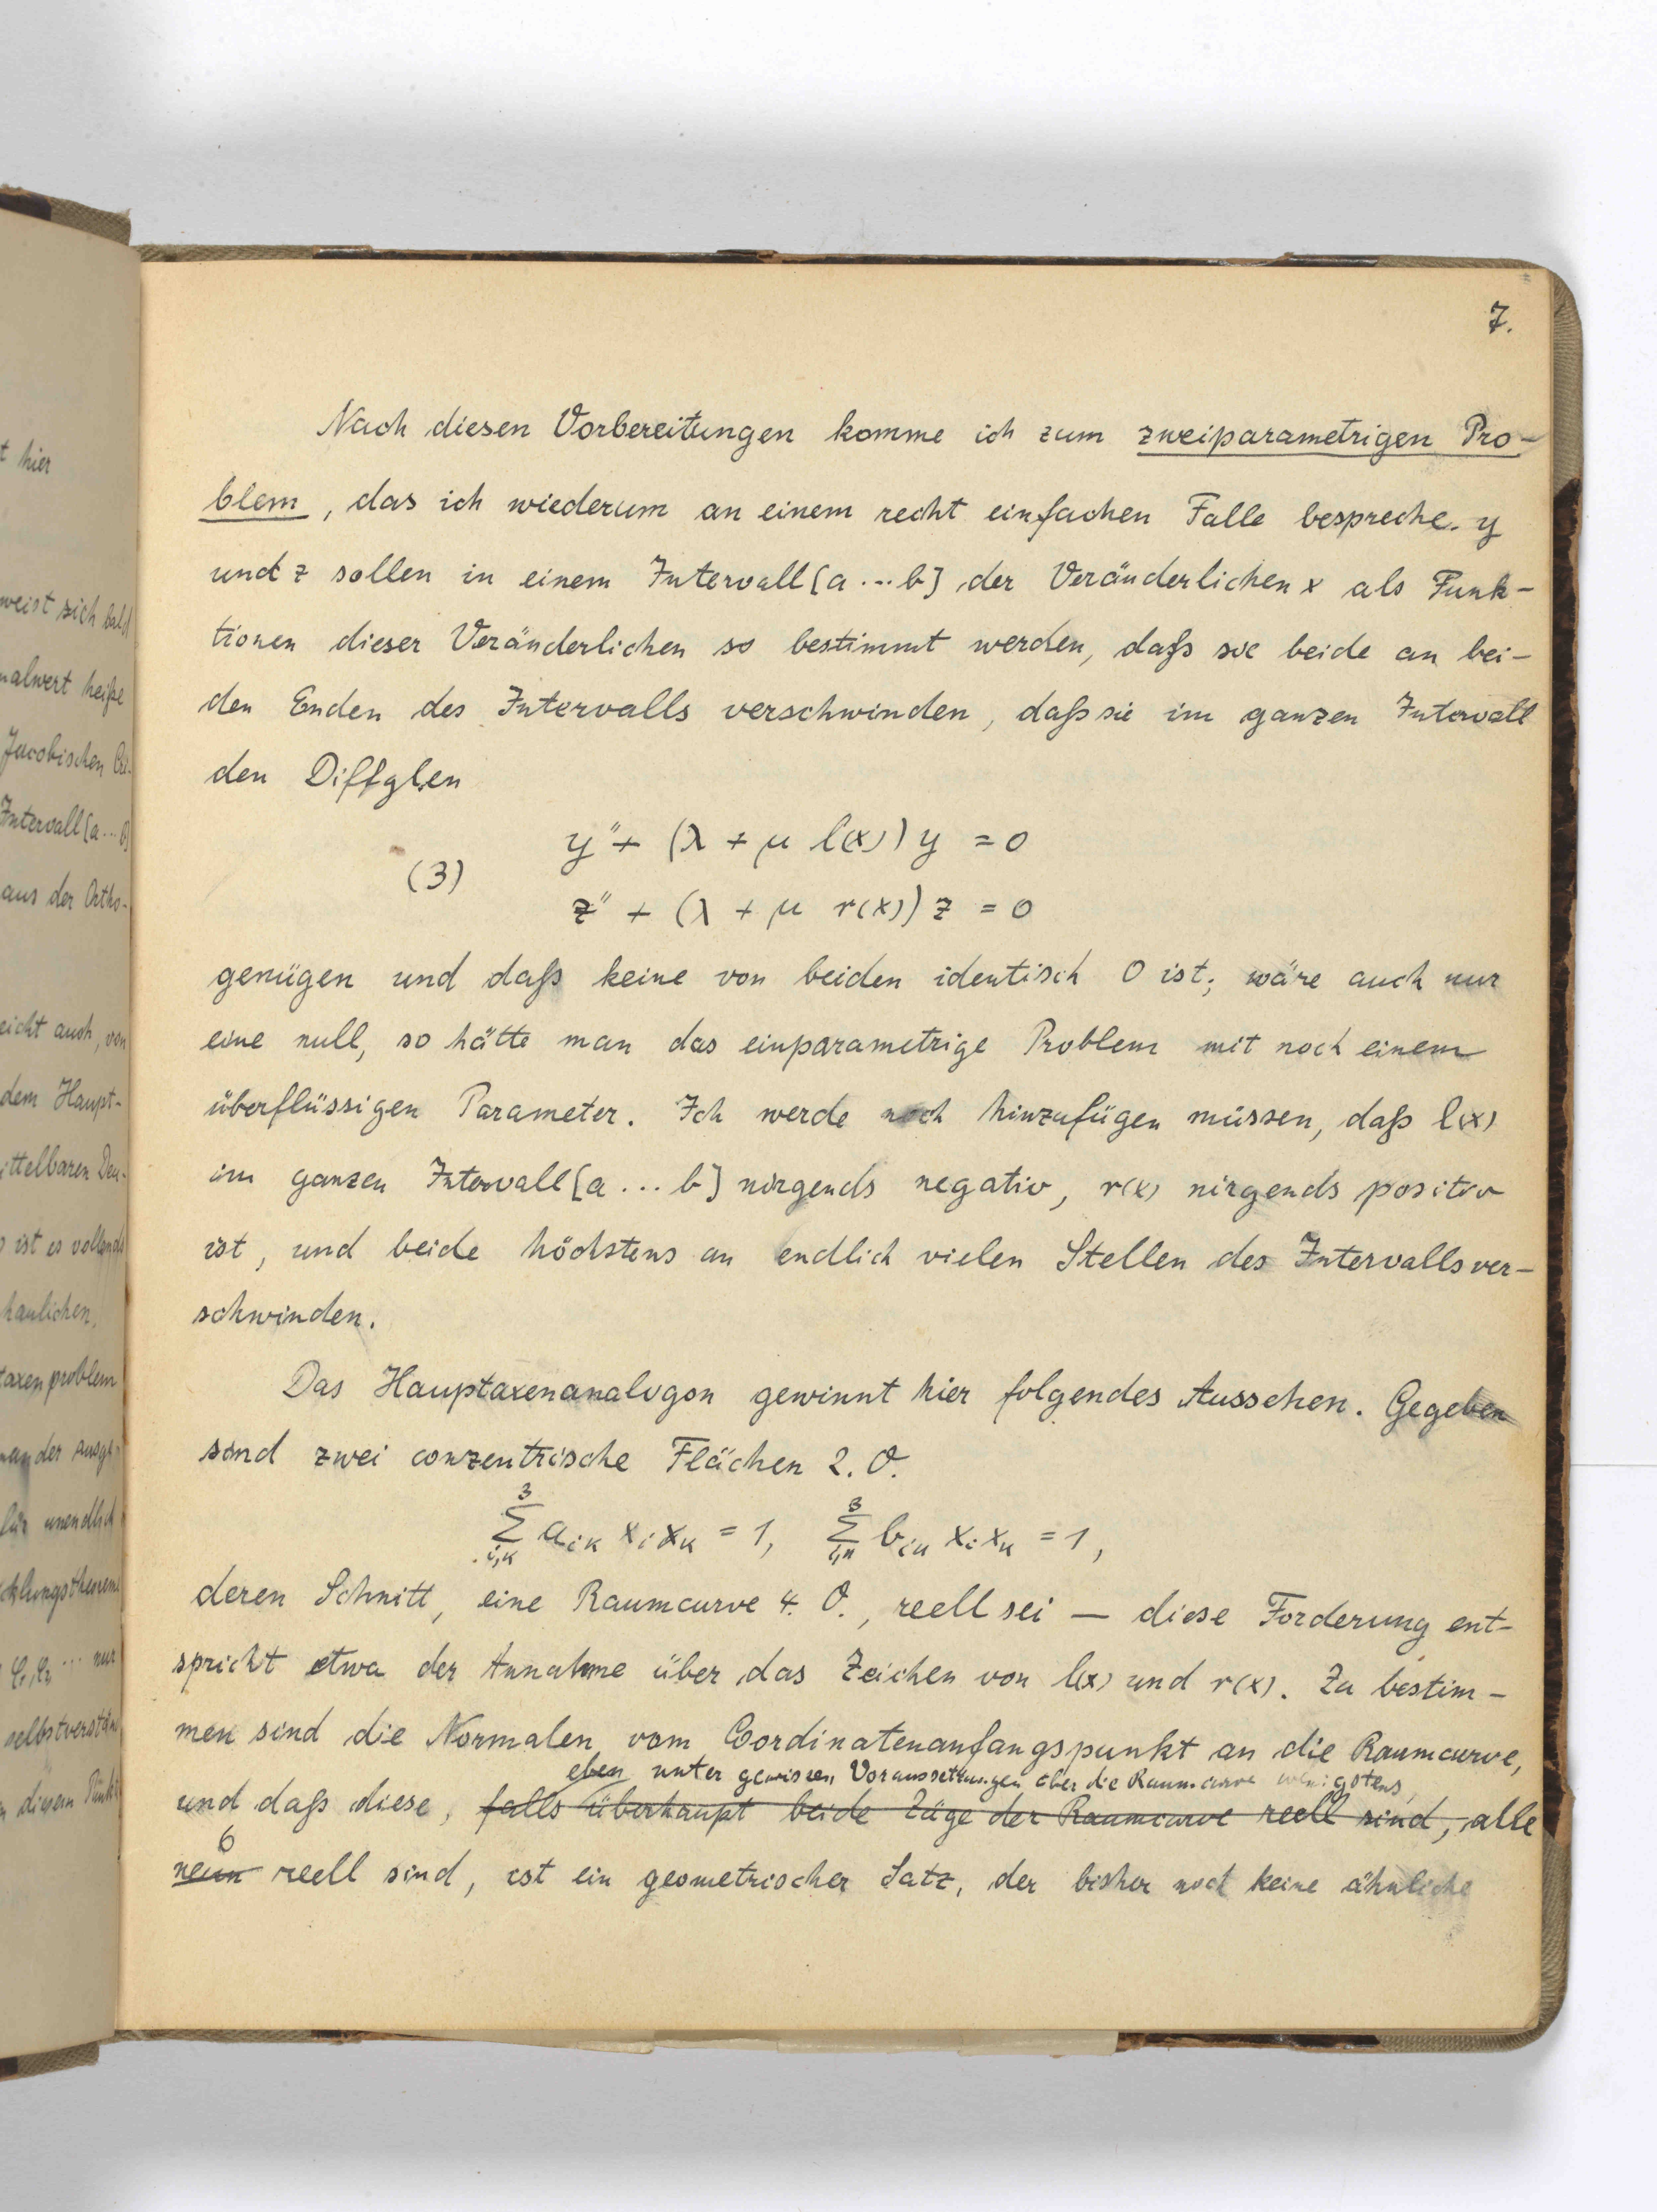 7.
Nach diesen Vorbereitungen komme ich zum zweiparametrigen Pro-
blem, das ich wiederum an einem recht einfachen Falle bespreche. y
und z sollen in einem Intervall [a...b] der Veränderlichen x als Funk-
tionen dieser Veränderlichen so bestimmt werden, daß sie beide an bei-
den Enden des Intervalls verschwinden, daß sie im ganzen Intervall
den Diffglen
y'' + (λ + μ l(x)) y = 0
(3)
z'' + (λ + μ r(x)) z = 0
genügen und daß keine von beiden identisch 0 ist; wäre auch nur
eine null, so hätte man das einparametrige Problem mit noch einem
überflüssigen Parameter. Ich werde noch hinzufügen müssen, daß l(x)
im ganzen Intervall [a...b] nirgends negativ, r(x) nirgends positiv
ist, und beide höchstens an endlich vielen Stellen des Intervalls ver-
schwinden.
Das Hauptaxenanalogon gewinnt hier folgendes Aussehen. Gegeben
sind zwei conzentrische Flächen 2. O.
3∑i,k aik xi xk = 1, 3∑i,k bik xi xk = 1,
deren Schnitt, eine Raumcurve 4. O., reell sei — diese Forderung ent-
spricht etwa der Annahme über das Zeichen von l(x) und r(x). Zu bestim-
men sind die Normalen vom Coordinatenanfangspunkt an die Raumcurve,
eben unter gewissen Voraussetzungen über die Raumcurve wenigstens,
und daß diese, falls überhaupt beide Züge der Raumcurve reell sind, alle
6
neun reell sind, ist ein geometrischer Satz, der bisher noch keine ähnliche
t hier
weist sich bald
nalwert heiße
Jacobischen
Intervall [a...b]
aus der Ortho-
eicht auch, von
dem Haupt-
ittelbaren
ist es vollends
haulichen,
taxenproblem
nander
für unendlich
cklungstheoreme
φ1, φ2 ... nur
selbstverstän
n diesem